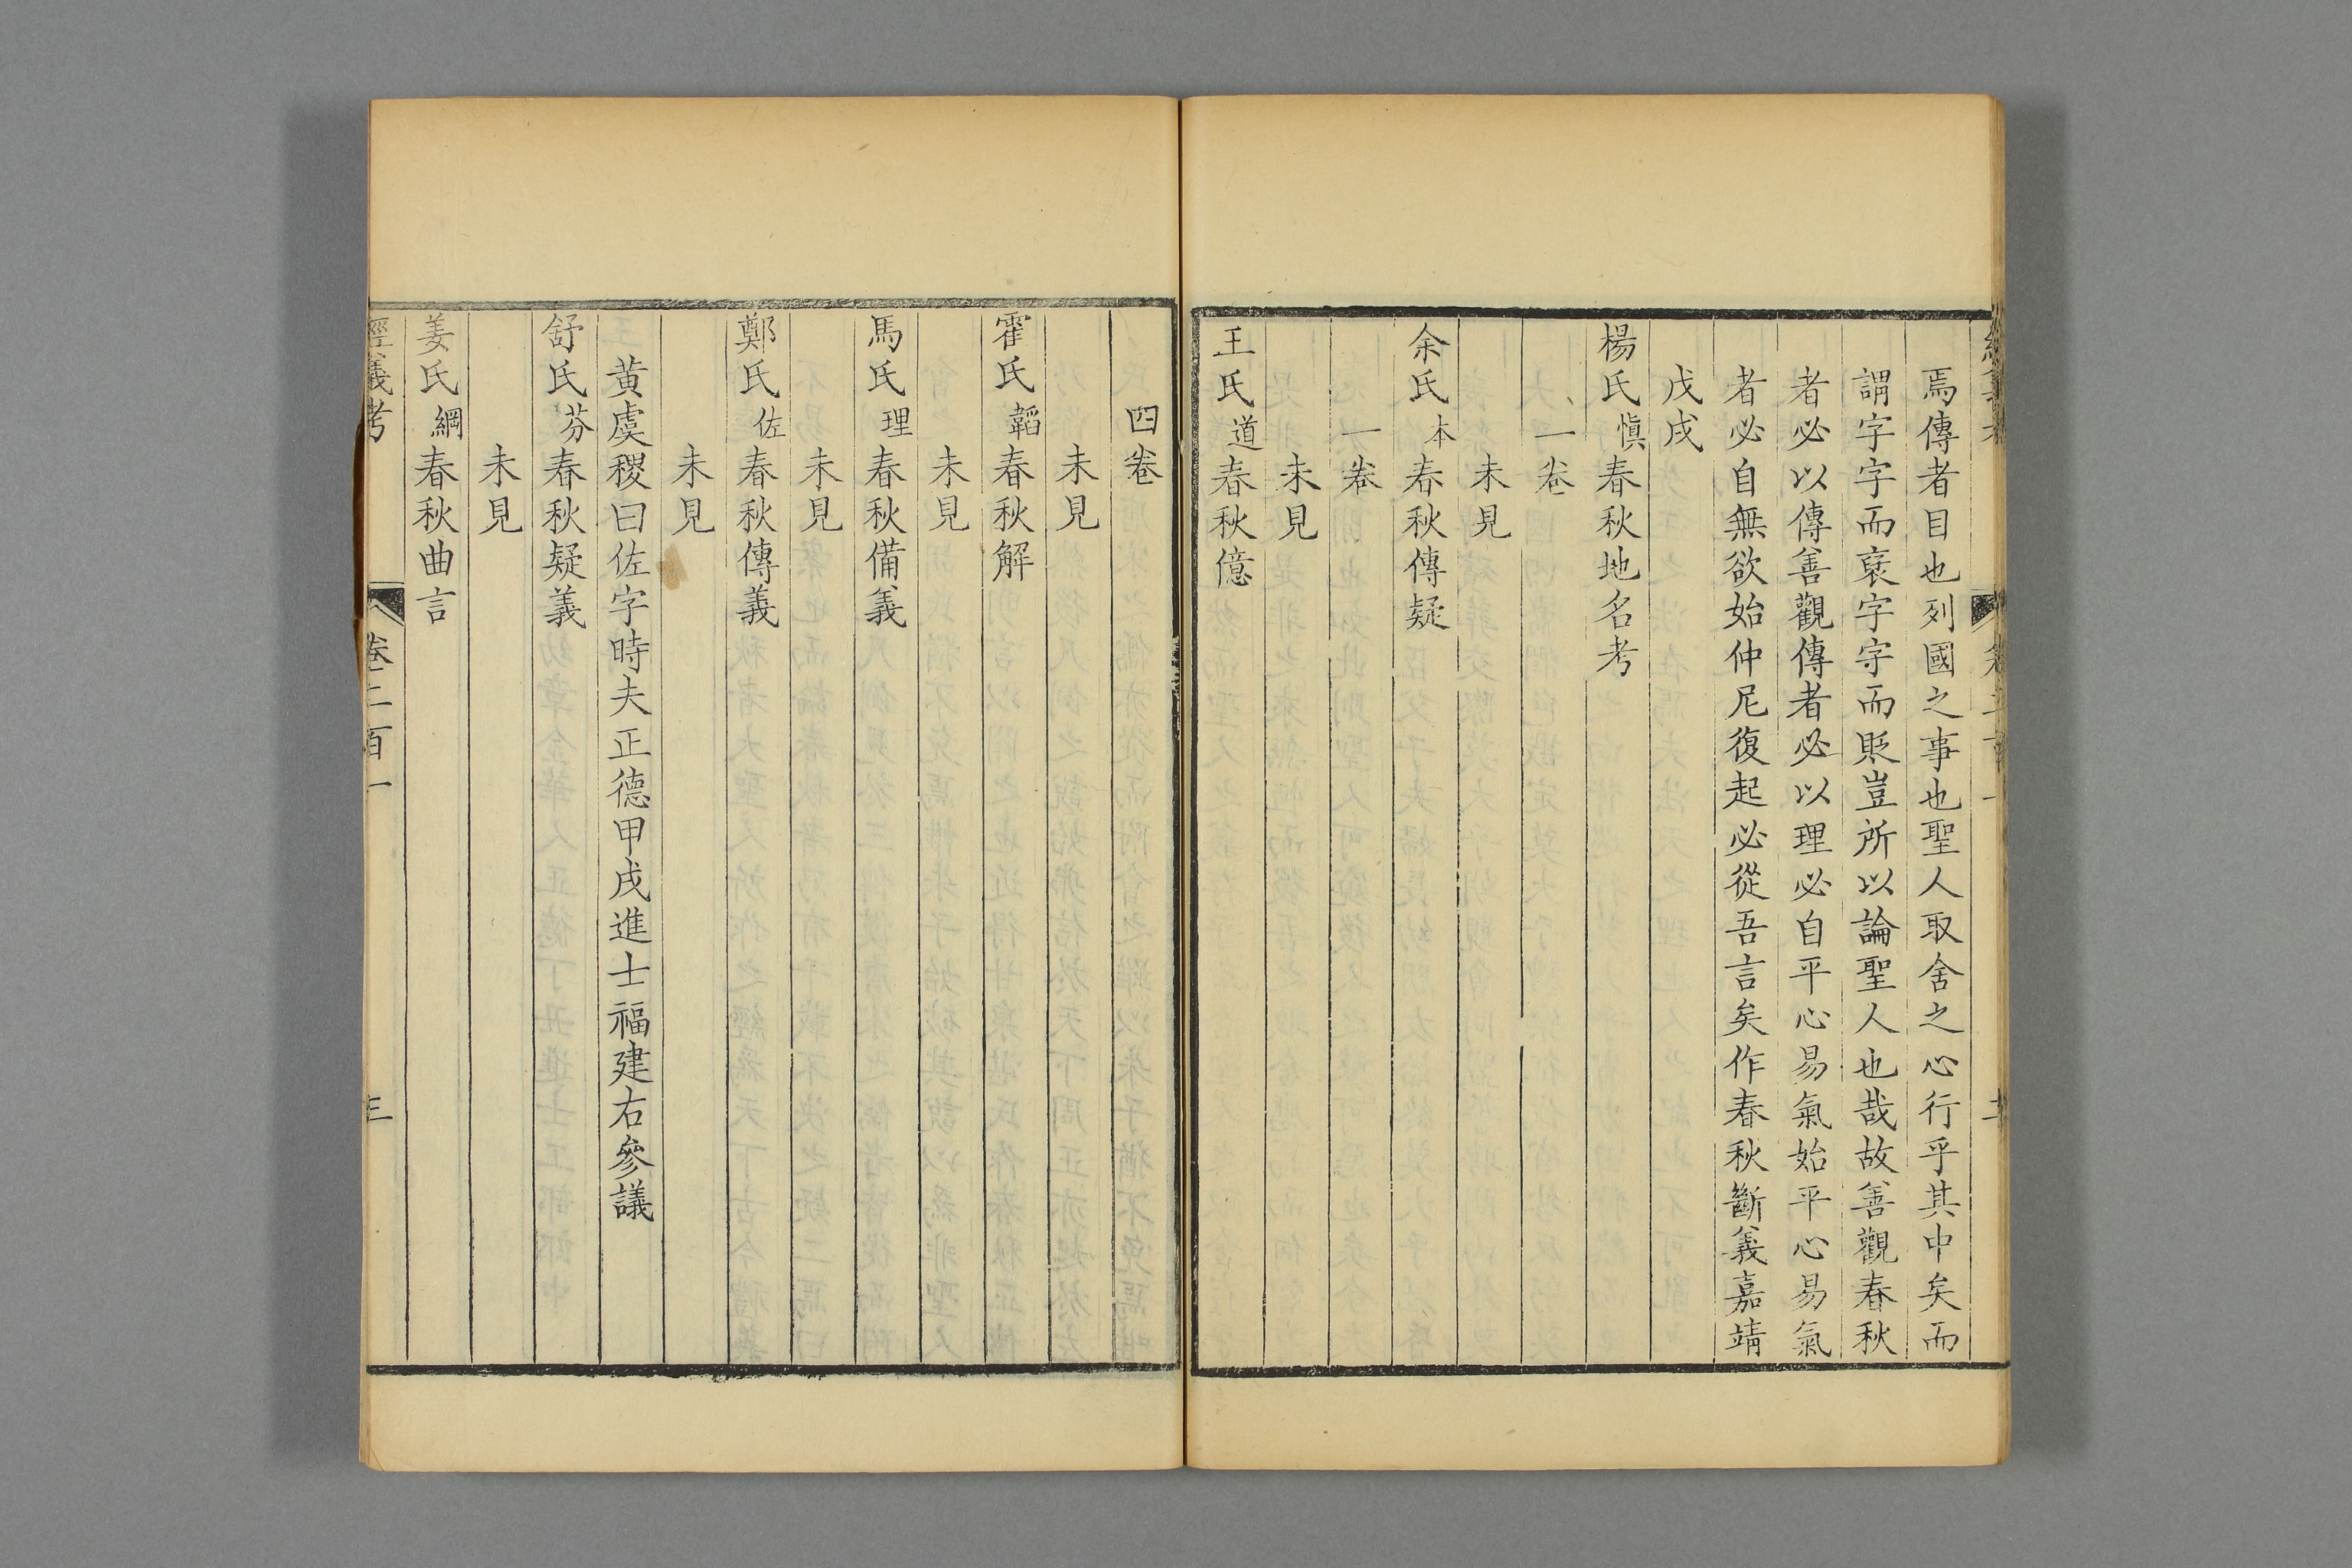 焉傳者目也列國之事也聖人取舍之心行乎其中矣而
謂字字而襃字字而貶豈所以論聖人也哉故善觀春秋
者必以傳善觀傳者必以理必自平心易氣始平心易氣
者必自無欲始仲尼復起必從吾言矣作春秋斷義嘉靖
戊戌
楊氏愼春秋地名考
一卷
未見
余氏本春秋傳疑
一卷
未見
王氏道春秋億
四卷
未見
霍氏韜春秋解
未見
馬氏理春秋備義
未見
鄭氏佐春秋傳義
未見
黃虞稷曰佐字時夫正德甲戌進士福建右參議
舒氏芬春秋疑義
未見
姜氏綱春秋曲言
經義考 卷二百一 三